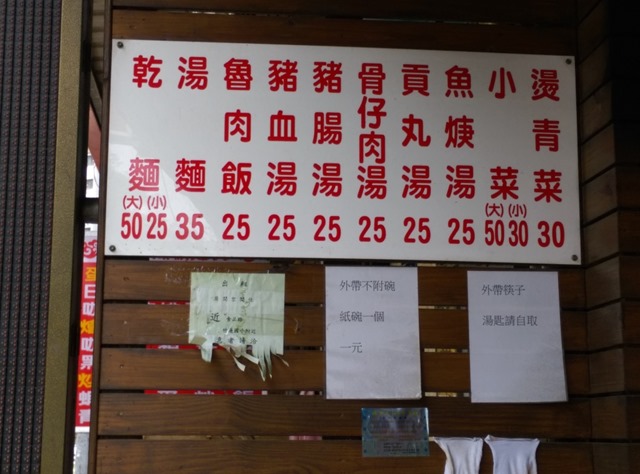 乾麵
(大) (小)
50 25
湯麵
35
魯肉飯
25
豬血湯
25
豬腸湯
25
骨仔肉湯
25
貢丸湯
25
魚焿湯
25
小菜
(大) (小)
50 30
燙青菜
30
出租
近
外帶不附碗
紙碗一個
一元
外帶筷子
湯匙請自取